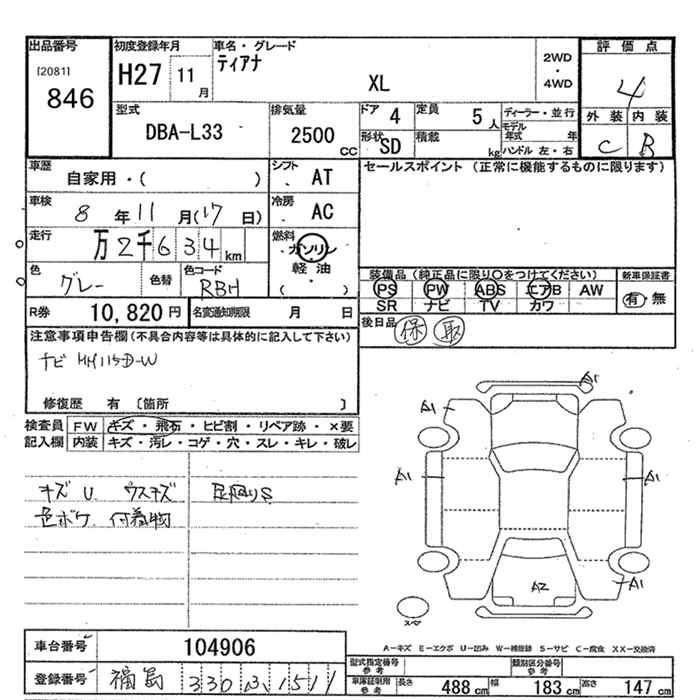 出品番号 初度登録年月 車名・グレード 評価点
[2081] H27 11月 ティアナ 2WD・4WD 4
846 XL 外装 内装
型式 排気量 ドア 4 定員 5人 ディーラー・並行 C B
DBA-L33 2500CC 形状 SD 積載 kg モデル年式 年 ハンドル 左・右
車歴 シフト セールスポイント (正常に機能するものに限ります)
自家用・( ) AT
車検 8年11月(17日) 冷房 AC
走行 万2千634km 燃料 ガソリン・軽油・( )
色 グレー 色替 色コード RBH 装備品 (純正品に限り○をつけてください) 新車保証書
PS PW ABS エアB AW 有・無
R券 10,820円 名変通知期限 月 日 SR ナビ TV カワ
注意事項申告欄(不具合内容等は具体的に記入して下さい) 後日品 保 取
ナビ HM115D-W
修復歴 有 〔箇所 〕
検査員 FW キズ・飛石・ヒビ割・リペア跡・×要
記入欄 内装 キズ・汚レ・コゲ・穴・スレ・キレ・破レ
キズ U ウスキズ
色ボケ 付着物
A1
A1
A1
A1
A1
A1
A2
スペ
A-キズ E-エクボ U-凹み W-補修跡 S-サビ C-腐食 XX-交換済
車台番号 104906 型式指定番号 参考 類別区分番号 参考
登録番号 福島 330 み 1511 車庫証明用 参考 長さ 488cm 幅 183cm 高さ 147cm